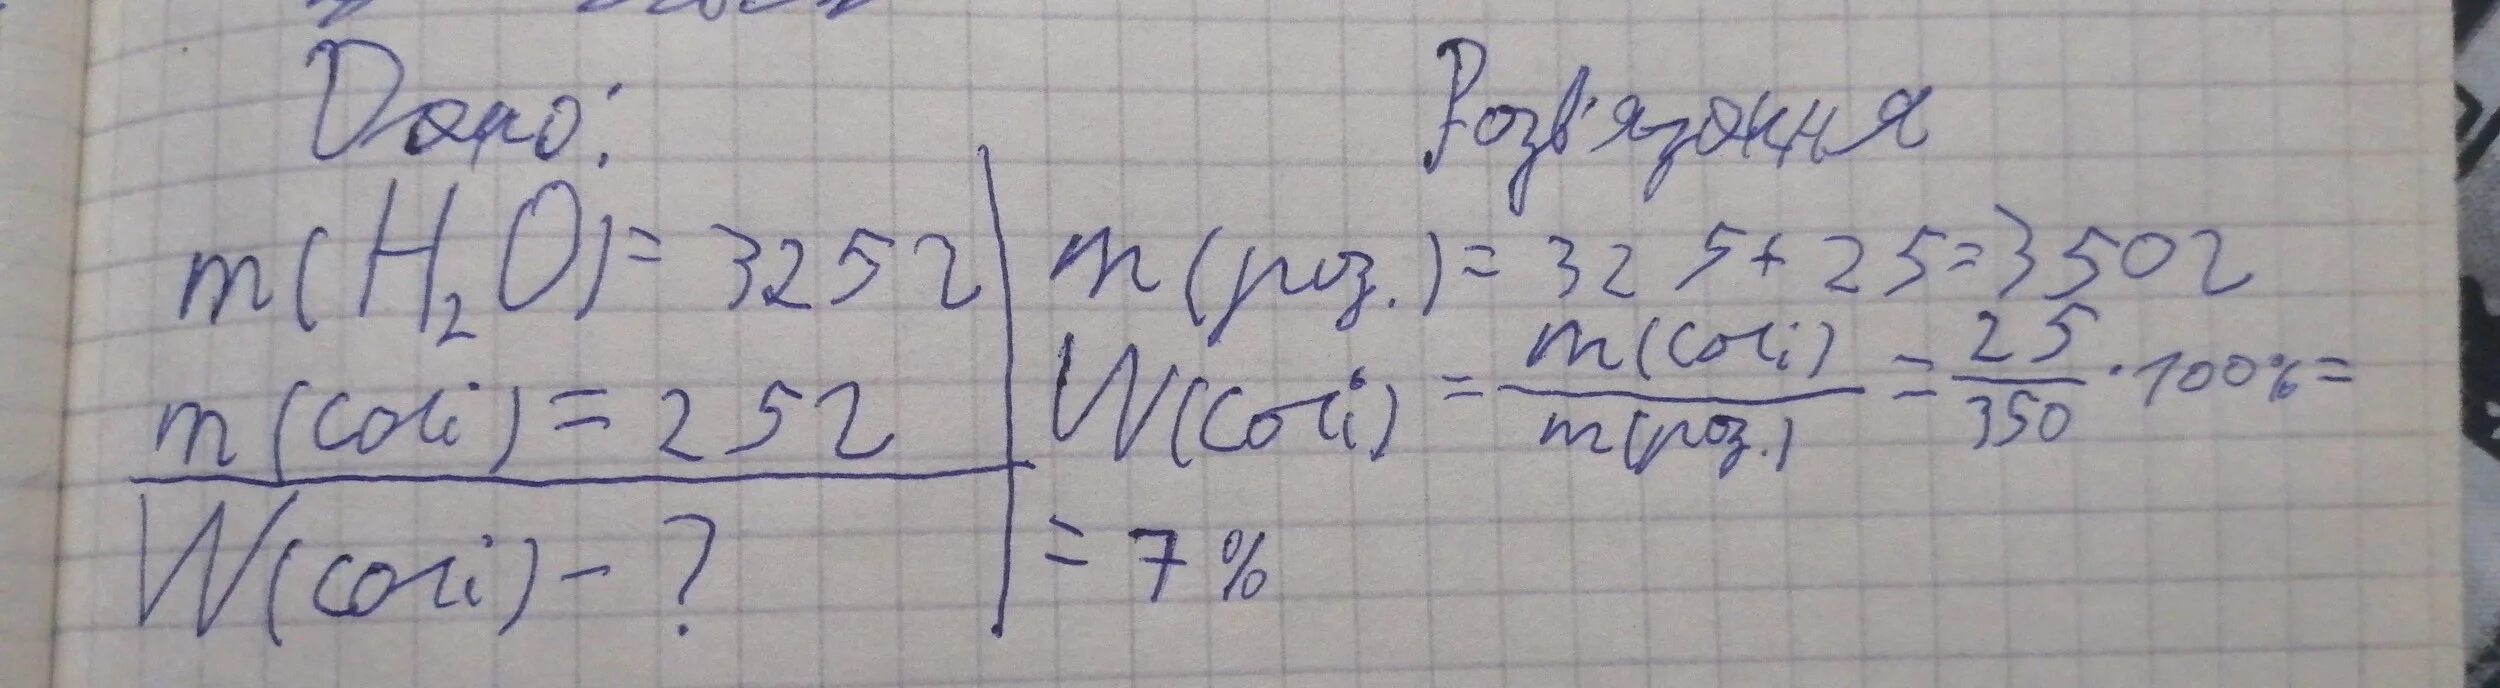 Дано:
m(H₂O)=325г
m(солі)=25г
W(солі)-?
Розв'язання
m(роз.)=325+25=350г
W(солі)=m(солі)/m(роз.)=25/350·100%=
=7%